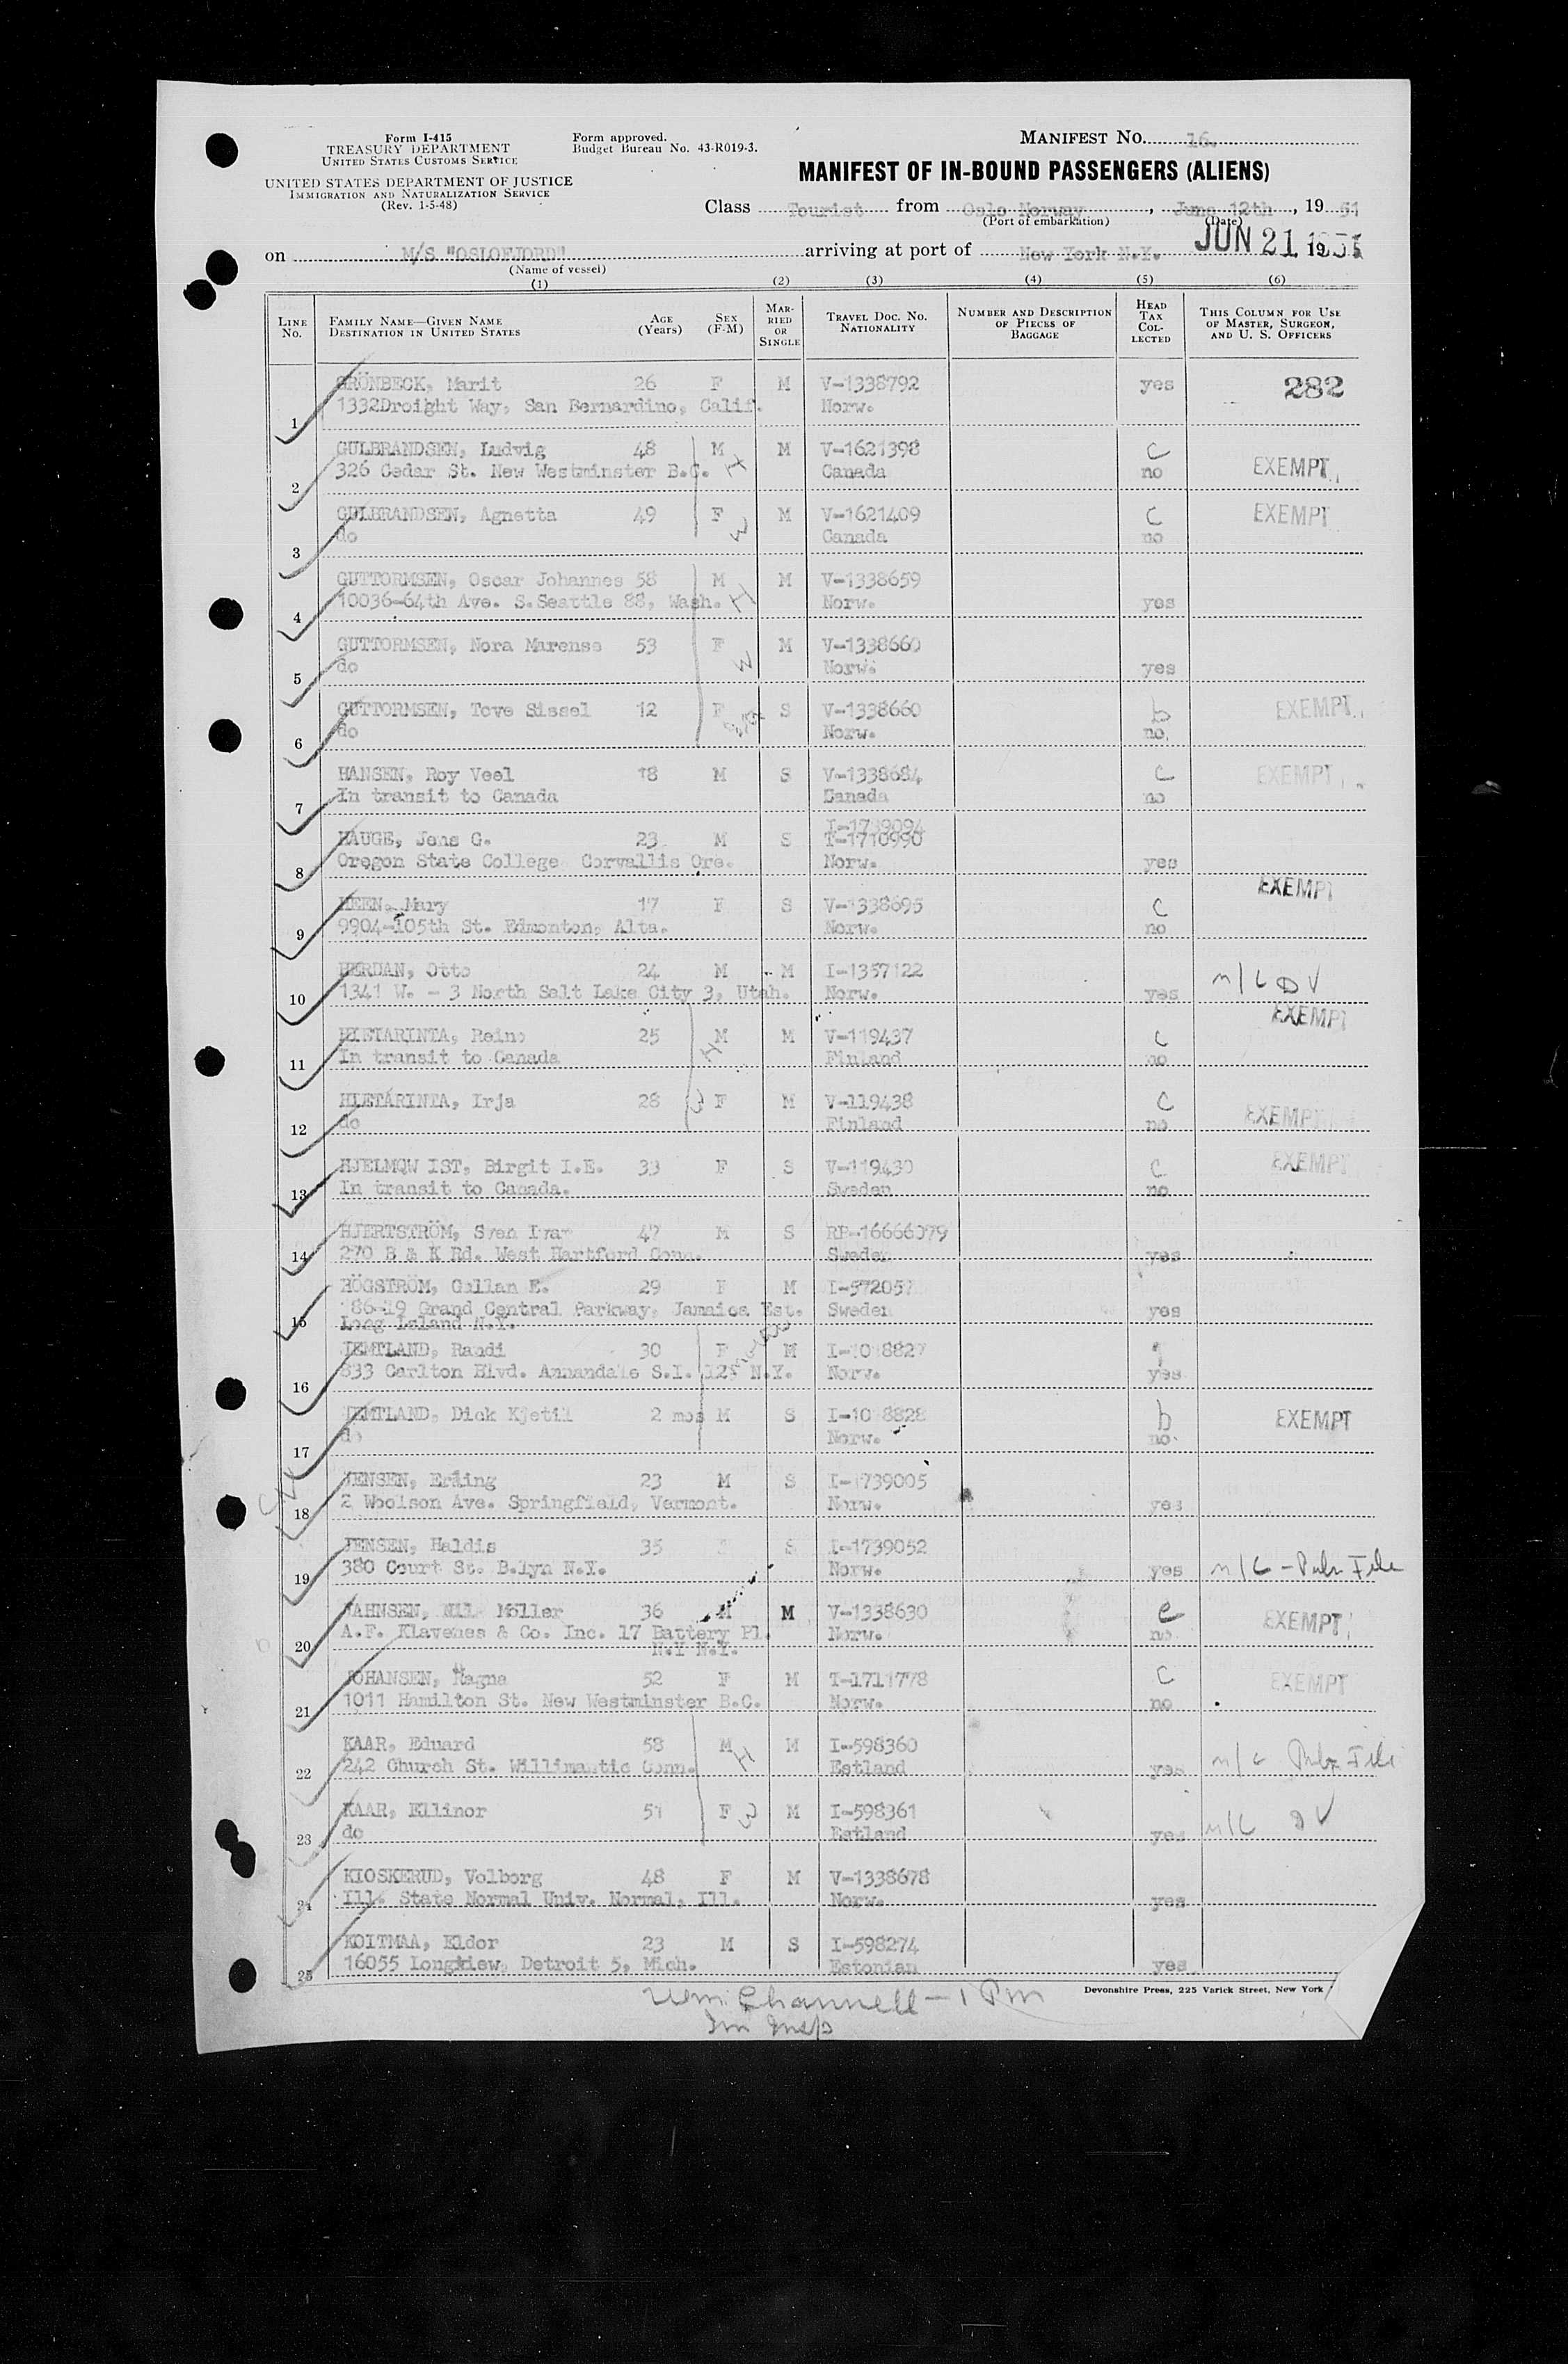 Form I-415
TREASURY DEPARTMENT
UNITED STATES CUSTOMS SERVICE
UNITED STATES DEPARTMENT OF JUSTICE
IMMIGRATION AND NATURALIZATION SERVICE
(Rev. 1-5-48)
Form approved.
Budget Bureau No. 43-R019-3.
MANIFEST NO. 16.
MANIFEST OF IN-BOUND PASSENGERS (ALIENS)
Class Tourist from Oslo Norway, June 12th, 19 51
(Port of embarkation) (Date)
on M/S "OSLOFJORD" arriving at port of New York N.Y. JUN 21 1951
(Name of vessel)
(1) (2) (3) (4) (5) (6)
LINE NO. FAMILY NAME—GIVEN NAME DESTINATION IN UNITED STATES AGE (Years) SEX (F-M) MARRIED OR SINGLE TRAVEL DOC. NO. NATIONALITY NUMBER AND DESCRIPTION OF PIECES OF BAGGAGE HEAD TAX COLLECTED THIS COLUMN FOR USE OF MASTER, SURGEON, AND U. S. OFFICERS
GRÖNBECK, Marit 26 F M V-1338792 yes 282
1 1332Droight Way, San Bernardino, Calif. Norw.
GULBRANDSEN, Ludvig 48 M H M V-1621398 C
2 326 Cedar St. New Westminster B.C. Canada no EXEMPT
GULBRANDSEN, Agnetta 49 F W M V-1621409 C EXEMPT
3 do Canada no
GUTTORMSEN, Oscar Johannes 58 M H M V-1338659
4 10036-64th Ave. S.Seattle 88, Wash. Norw. yes
GUTTORMSEN, Nora Marense 53 F W M V-1338660
5 do Norw. yes
GUTTORMSEN, Tove Sissel 12 F S V-1338660 b EXEMPT
6 do Norw. no.
HANSEN, Roy Veel 18 M S V-1338684 C EXEMPT
7 In transit to Canada Canada no
I-1739094
HAUGE, Jens G. 23 M S T-1710990
8 Oregon State College Corvallis Ore. Norw. yes
EXEMPT
HEEN, Mary 17 F S V-1338695 C
9 9904-105th St. Edmonton, Alta. Norw. no
HERDAN, Otto 24 M M I-1357122 n/c DV
10 1341 W. - 3 North Salt Lake City 3, Utah. Norw. yes
EXEMPT
HIETARINTA, Reino 25 M H M V-119437 C
11 In transit to Canada Finland no
HIETARINTA, Irja 28 W F M V-119438 C EXEMPT
12 do Finland no
HJELMQW IST, Birgit I.E. 33 F S V-119430 C EXEMPT
13 In transit to Canada. Sweden no
HJERTSTRÖM, Sven Ivar 47 M S RP-16666079
14 270 B & K Rd. West Hartford Conn. Sweden yes
HÖGSTRÖM, Gullan E. 29 F M I-572057
15 186-19 Grand Central Parkway, Jamaica Est. Sweden yes
Long Island N.Y.
JEMTLAND, Randi 30 F M I-1018827
16 833 Carlton Blvd. Annandale S.I. 12, N.Y. Norw. yes
JEMTLAND, Dick Kjetil 2 mos M S I-1018828 b EXEMPT
17 do Norw. no.
JENSEN, Erling 23 M S I-1739005
18 2 Woolson Ave. Springfield, Vermont. Norw. yes
JENSEN, Haldis 35 F S I-1739052
19 380 Court St. B.lyn N.Y. Norw. yes n/c - File
JAHNSEN, Möller 36 M M V-1338630 e EXEMPT
20 A.F. Klavenes & Co. Inc. 17 Battery Pl. Norw. no
N.Y N.Y.
JOHANSEN, Ragna 52 F M T-1711778 C EXEMPT
21 1011 Hamilton St. New Westminster B.C. Norw. no
KAAR, Eduard 58 M H M I-598360 n/c File
22 242 Church St. Willimantic Conn. Estland yes
KAAR, Ellinor 51 F W M I-598361 n/c DV
23 do Estland yes
KIOSKERUD, Volborg 48 F M V-1338678
24 Ill. State Normal Univ. Normal, Ill. Norw. yes
KOITMAA, Eldor 23 M S I-598274
25 16055 Longview, Detroit 5, Mich. Estonian yes
Wm. Channell - 1 Pm
Im Insp
Devonshire Press, 225 Varick Street, New York